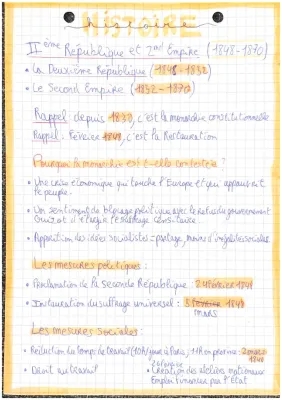 histoire
HISTOIRE
IIème République et 2nd Empire (1848-1870)
• La Deuxième République (1848-1852)
• Le Second Empire (1852-1870)
Rappel: depuis 1830, c'est la monarchie constitutionnelle
Rappel: Février 1848, c'est la Restauration
Pourquoi la monarchie est-elle contestée ?
• Une crise économique qui touche l'Europe et qui appauvrit
le peuple.
• Un sentiment de blocage politique avec le refus du gouvernement
Guizot d'élargir le suffrage censitaire
• Apparition des idées socialistes = partage, moins d'inégalités sociales
Les mesures politiques:
• Proclamation de la seconde République : 24 février 1848
• Instauration du suffrage universel : 5 février 1848
mars
Les mesures sociales:
• Réduction du temps de travail (10h/jour à Paris, 11h en province : 2 mars
1848
• Droit au travail
• Création des ateliers nationaux
Emploi financés par l'état